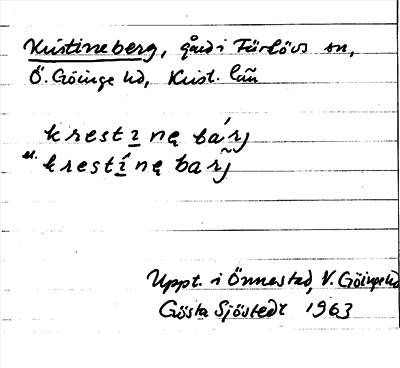 Kristineberg, gård i Färlövs sn,
Ö. Göinge hd, Krist. län
krestɪnę bárj
el. krestɪ́nę barj̃
Uppt. i Önnestad, V. Göinge hd
Gösta Sjöstedt 1963